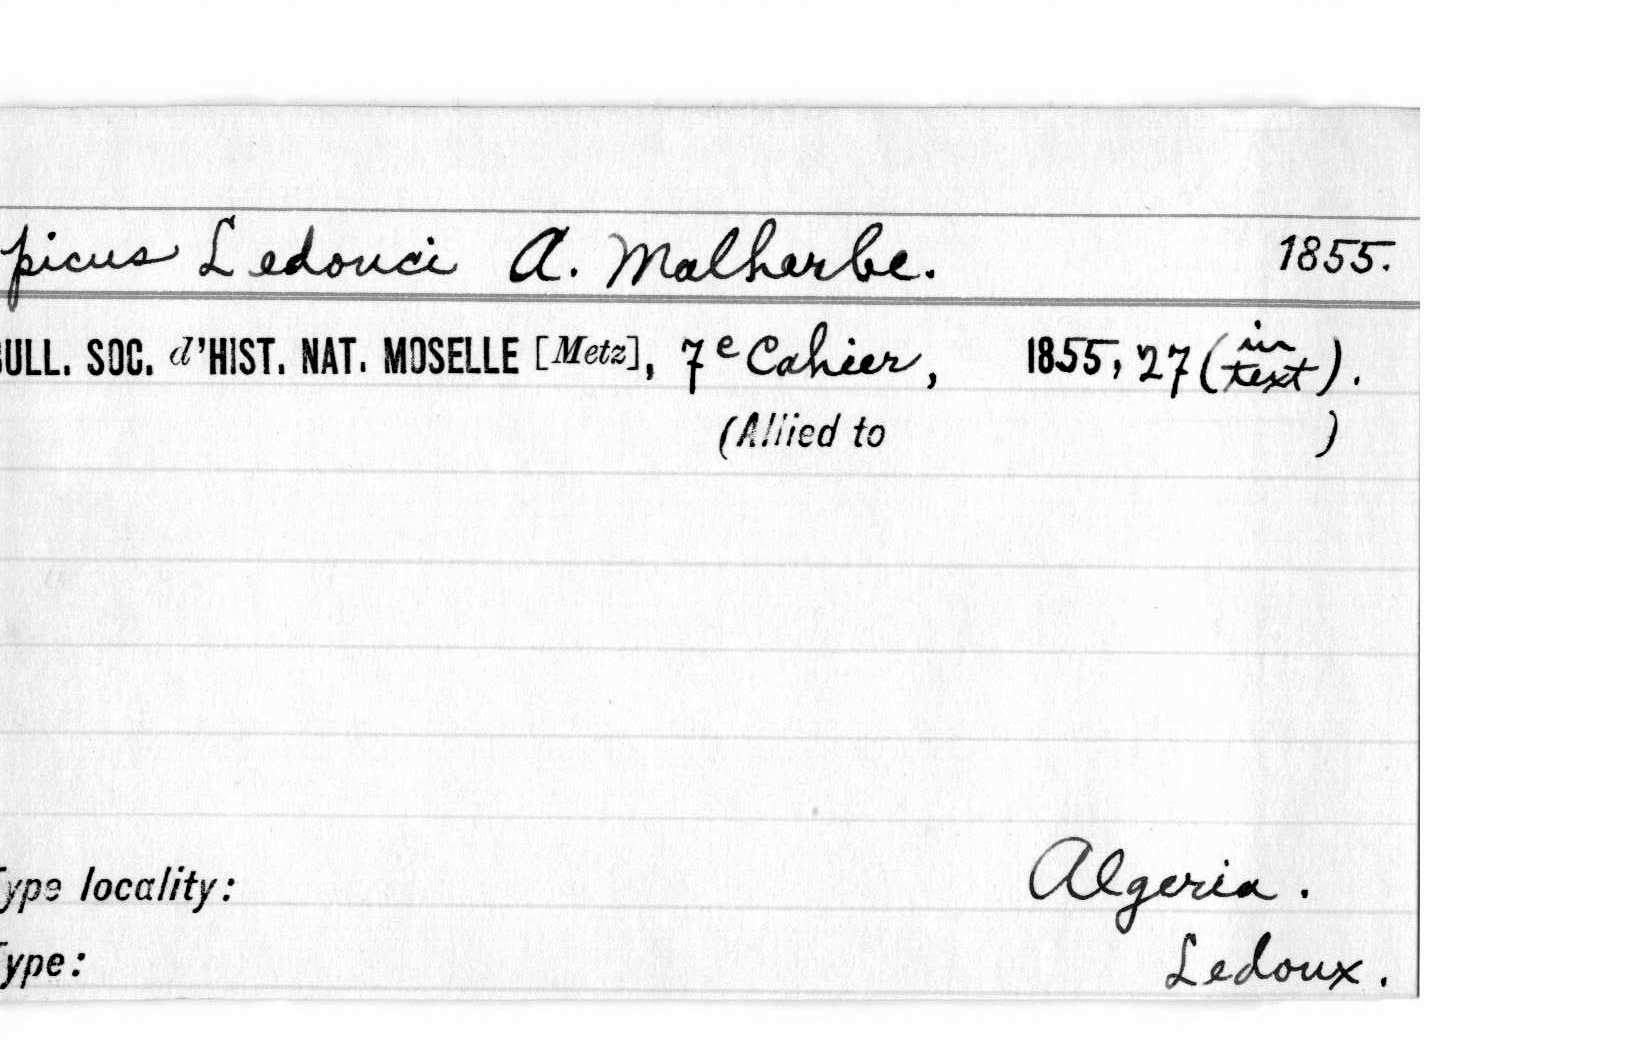 picus Ledouci A. Malherbe. 1855.
BULL. SOC. d'HIST. NAT. MOSELLE [Metz], 7e Cahier, 1855, 27 (in text).
(Allied to )
Type locality: Algeria.
Type: Ledoux.